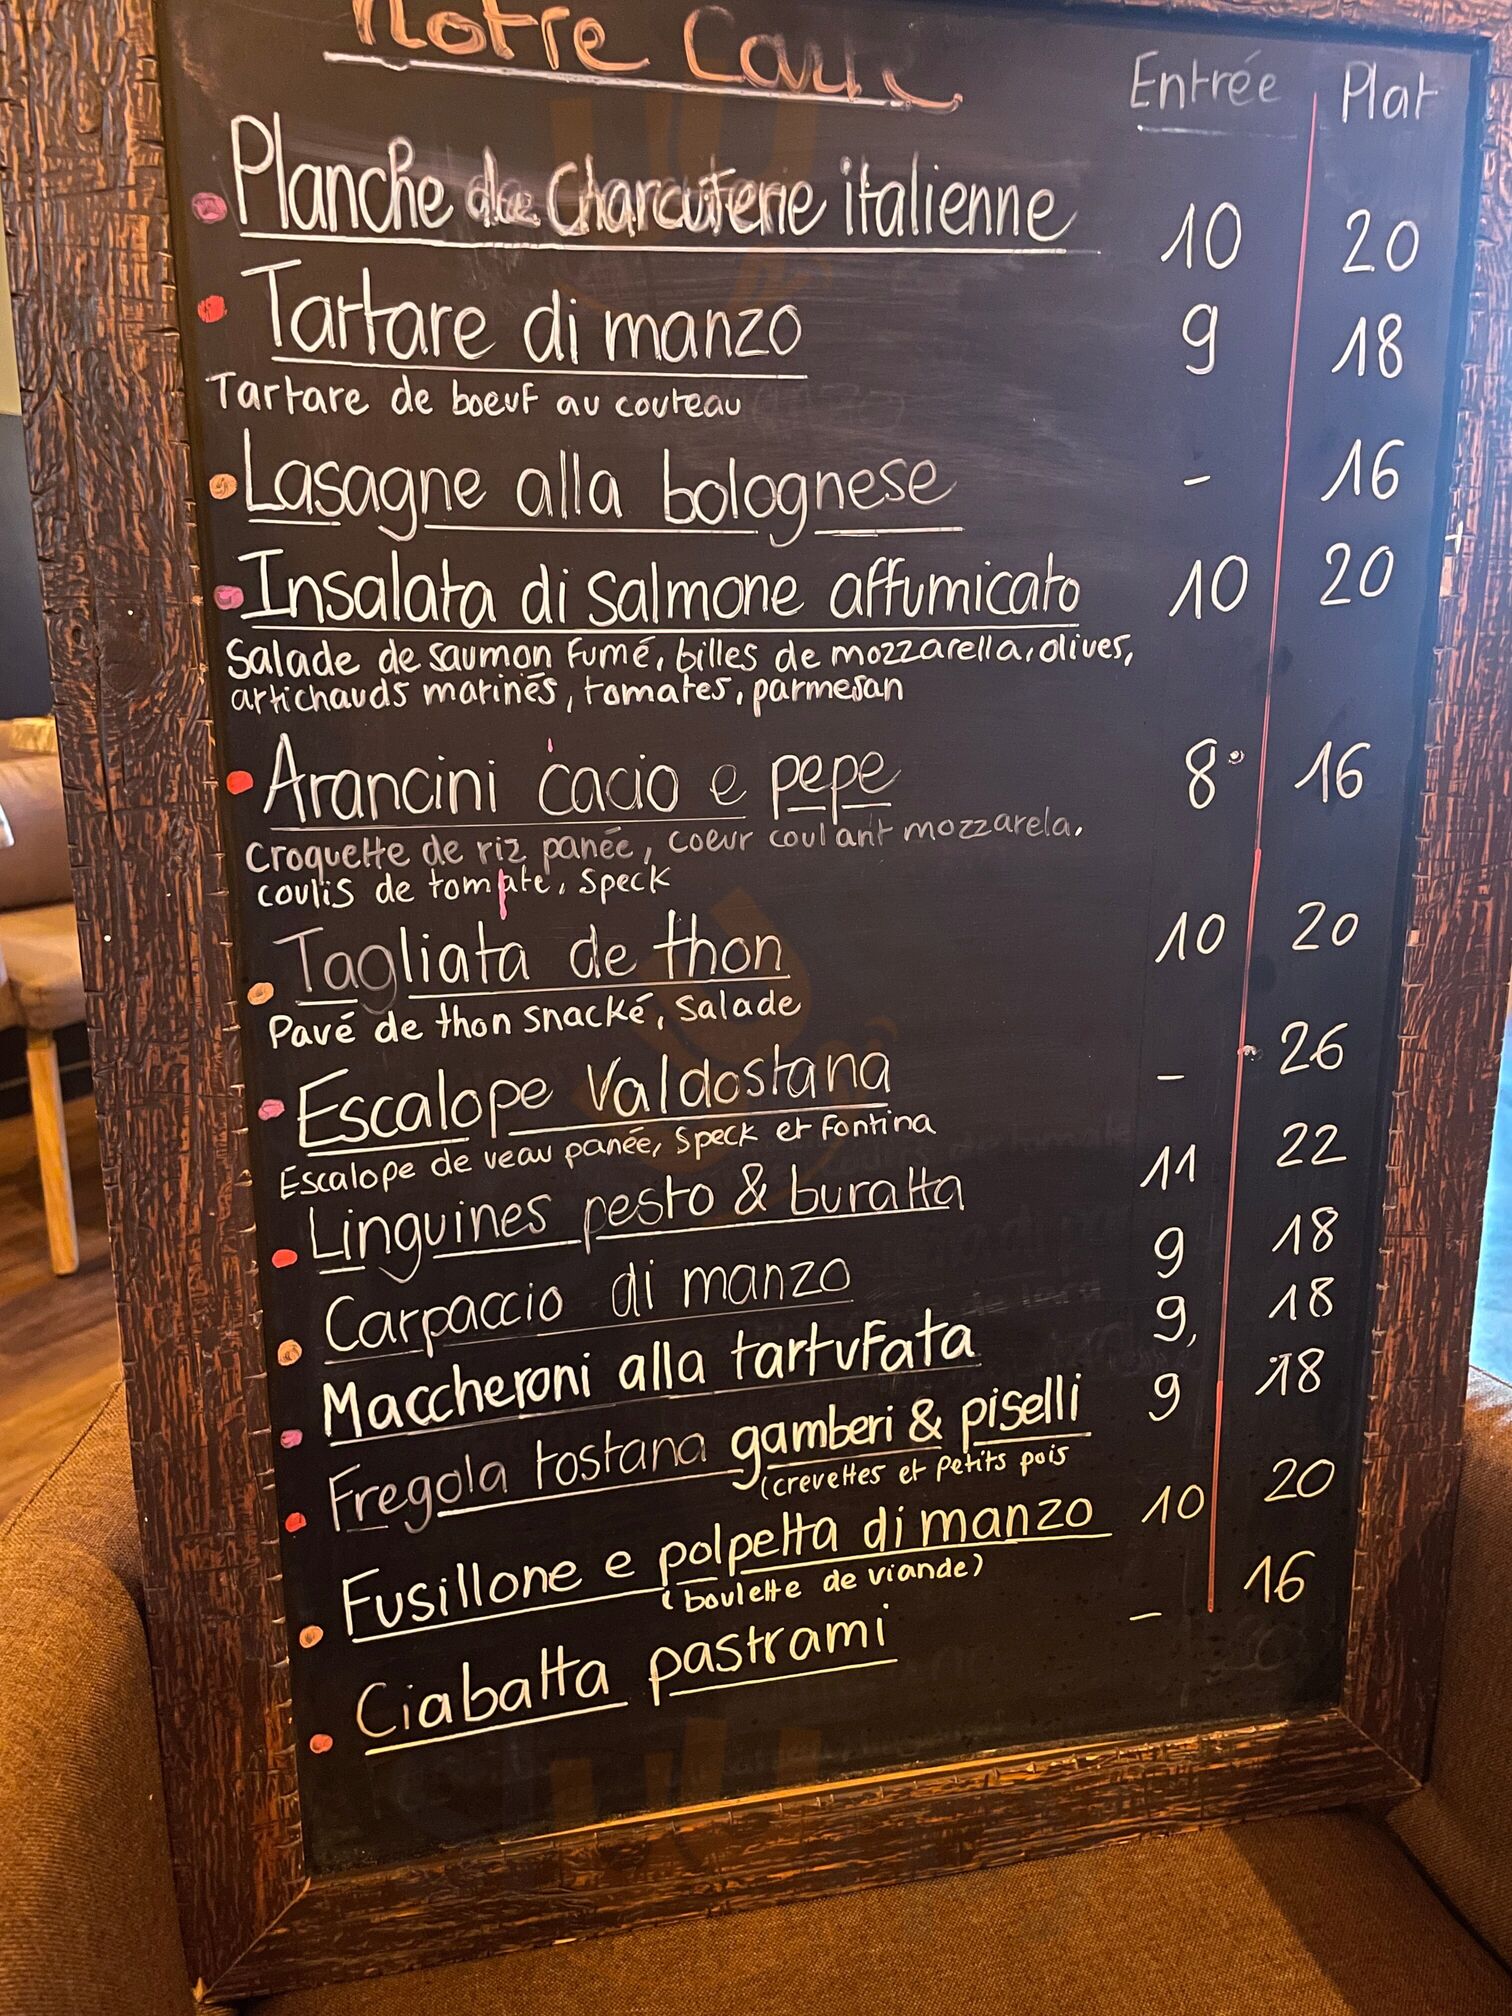 Notre Carte
Entrée Plat
Planche de Charcuterie italienne 10 20
Tartare di manzo 9 18
Tartare de boeuf au couteau
Lasagne alla bolognese - 16
Insalata di Salmone affumicato 10 20
Salade de saumon fumé, billes de mozzarella, olives,
artichauds marinés, tomates, parmesan
Arancini cacio e pepe 8 16
Croquette de riz panée, coeur coulant mozzarela,
coulis de tomate, Speck
Tagliata de thon 10 20
Pavé de thon snacké, Salade
Escalope Valdostana - 26
Escalope de veau panée, Speck et Fontina
Linguines pesto & buratta 11 22
Carpaccio di manzo 9 18
Maccheroni alla tartufata 9, 18
Fregola tostana gamberi & piselli 9 18
(crevettes et Petits pois
Fusillone e polpetta di manzo 10 20
(boulette de viande)
Ciabatta pastrami - 16